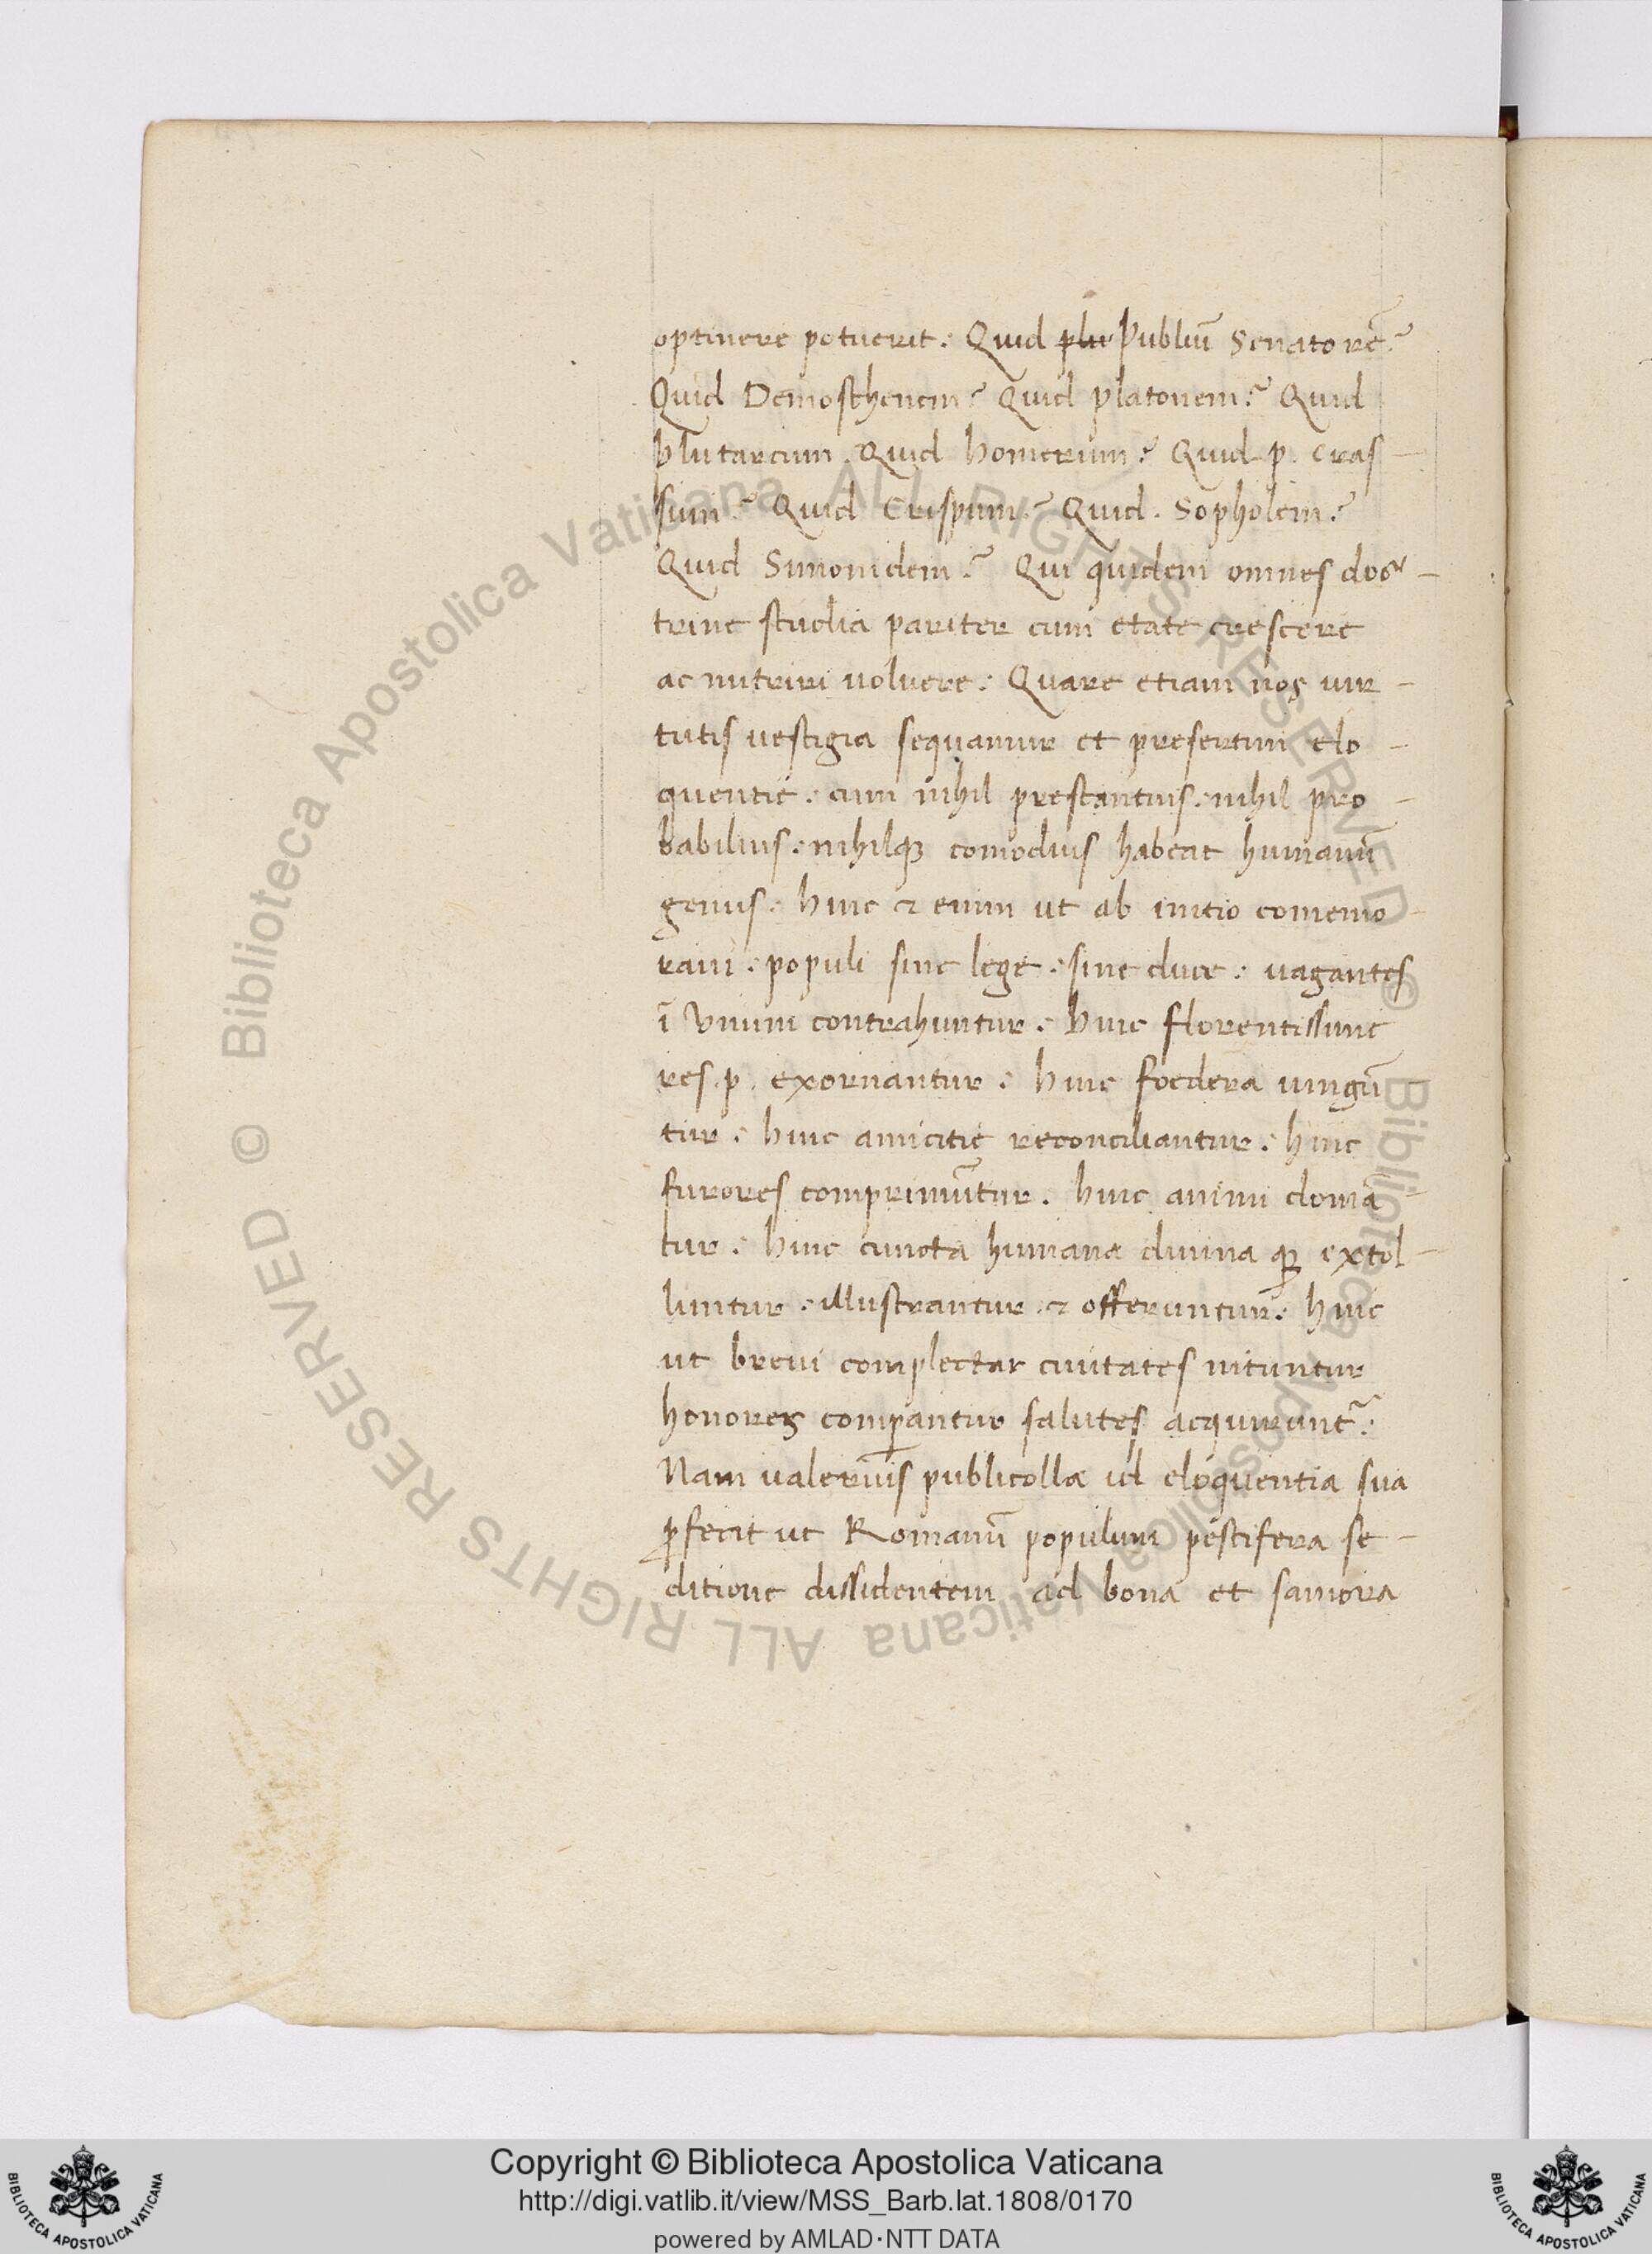 optinere potuerit : Quid plu Publiū Senatorē ?
Quid Demosthenem ? Quid platonem ? Quid
Plutarcum . Quid homerum ? Quid p . Cras-
sum ? Quid Crispum ? Quid . Sopholem ?
Quid Simonidem ? Qui quidem omnes doc-
trine studia pariter cum etate crescere
ac nutriri voluere : Quare etiam nos vir-
tutis vestigia sequamur et presertim elo-
quentie : cum nihil prestantius : nihil pro-
babilius : nihilqꝫ comodius habeat humanū
genus : hinc ⁊ enim ut ab initio comemo-
ravi : populi sine lege : sine duce : vagantes
ī Vnum contrahuntur : hinc florentissime
res . p . exornantur : hinc foedera iungū
tur : hinc amicitie reconciliantur : hinc
furores comprimūtur . hinc animi domā-
tur : hinc cuncta humana divina qꝫ extol-
luntur : illustrantur ⁊ offeruntur : hinc
ut brevi complectar civitates nituntur
honores comꝑantur salutes acquirunt᷑ :
Nam valerius publicolla vel eloquentia sua
ꝓfecit ut Romanū populum pestifera se-
ditione dissidentem ad bona et saniora
Biblioteca Apostolica Vaticana ALL RIGHTS RESERVED ©
Biblioteca Apostolica Vaticana ALL RIGHTS RESERVED ©
Copyright © Biblioteca Apostolica Vaticana
http://digi.vatlib.it/view/MSS_Barb.lat.1808/0170
powered by AMLAD·NTT DATA
BIBLIOTECA APOSTOLICA VATICANA
BIBLIOTECA APOSTOLICA VATICANA